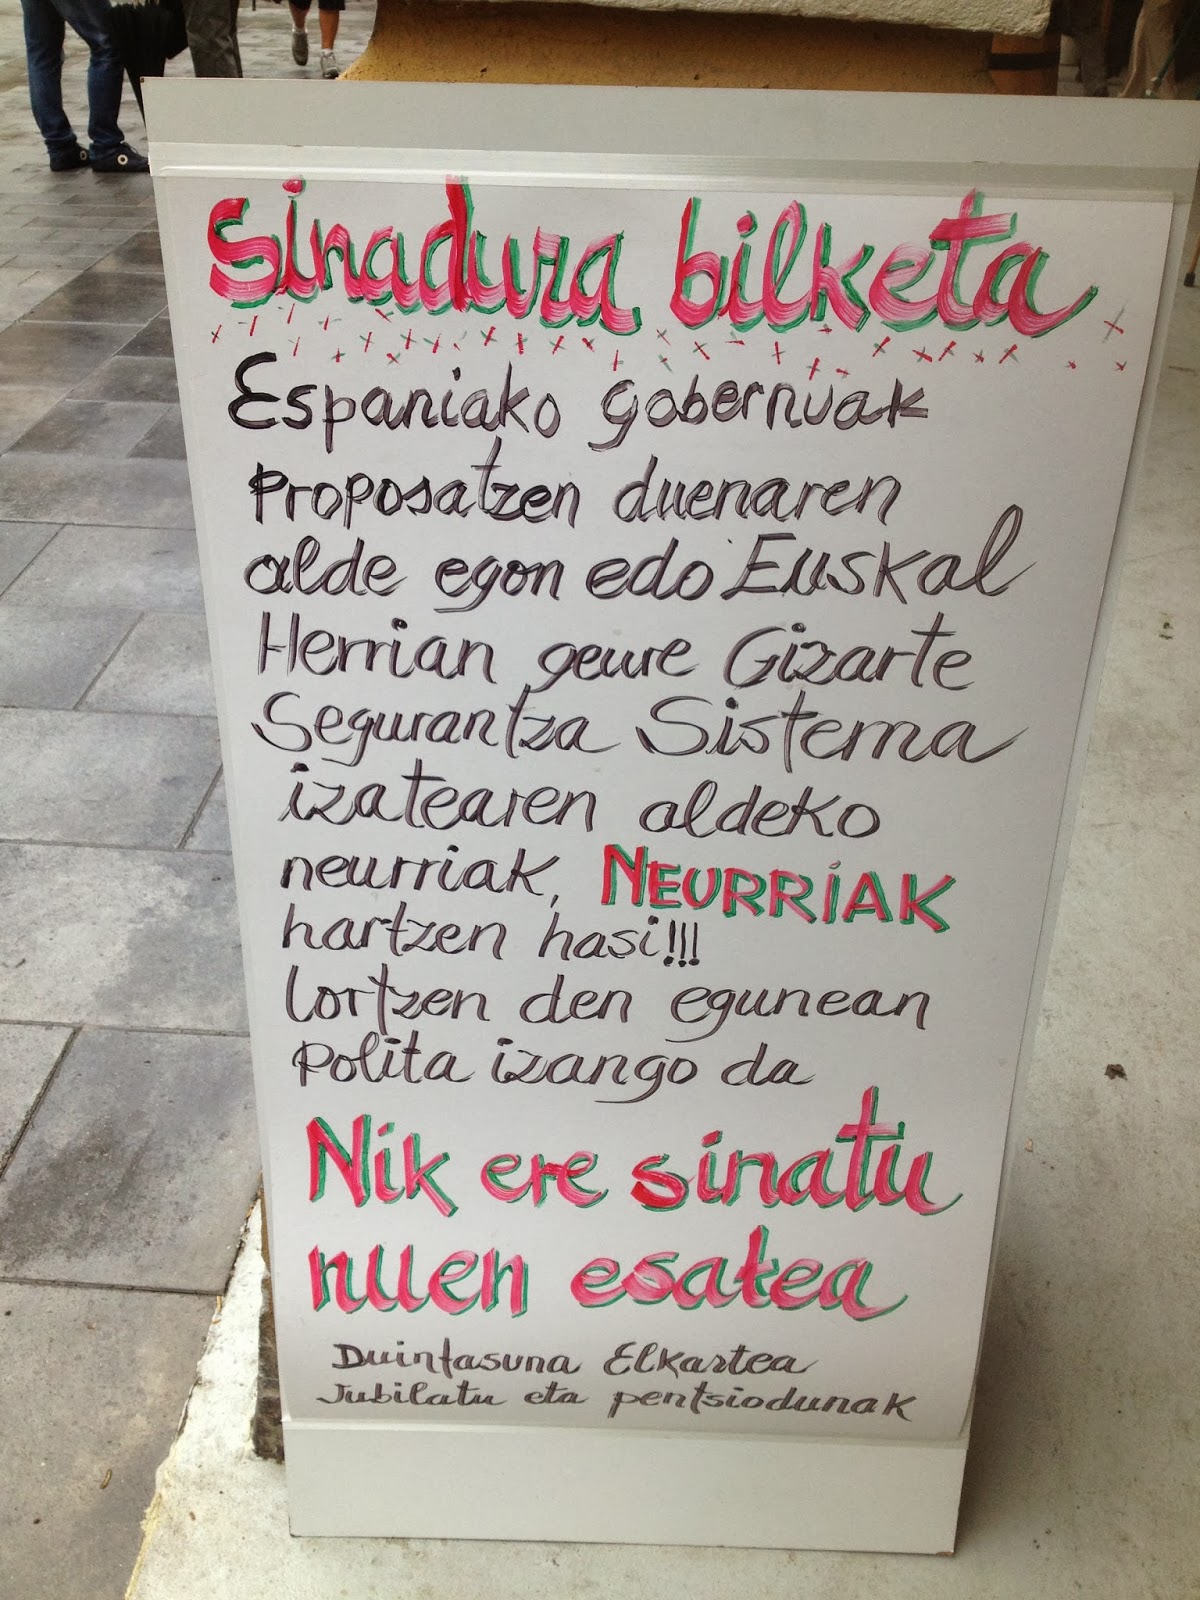 Sinadura bilketa
Espaniako gobernuak
proposatzen duenaren
alde egon edo Euskal
Herrian geure Gizarte
Segurantza Sistema
izatearen aldeko
neurriak, NEURRIAK
hartzen hasi!!!
lortzen den egunean
polita izango da
Nik ere sinatu
nuen esatea
Duintasuna Elkartea
Jubilatu eta pentsiodunak